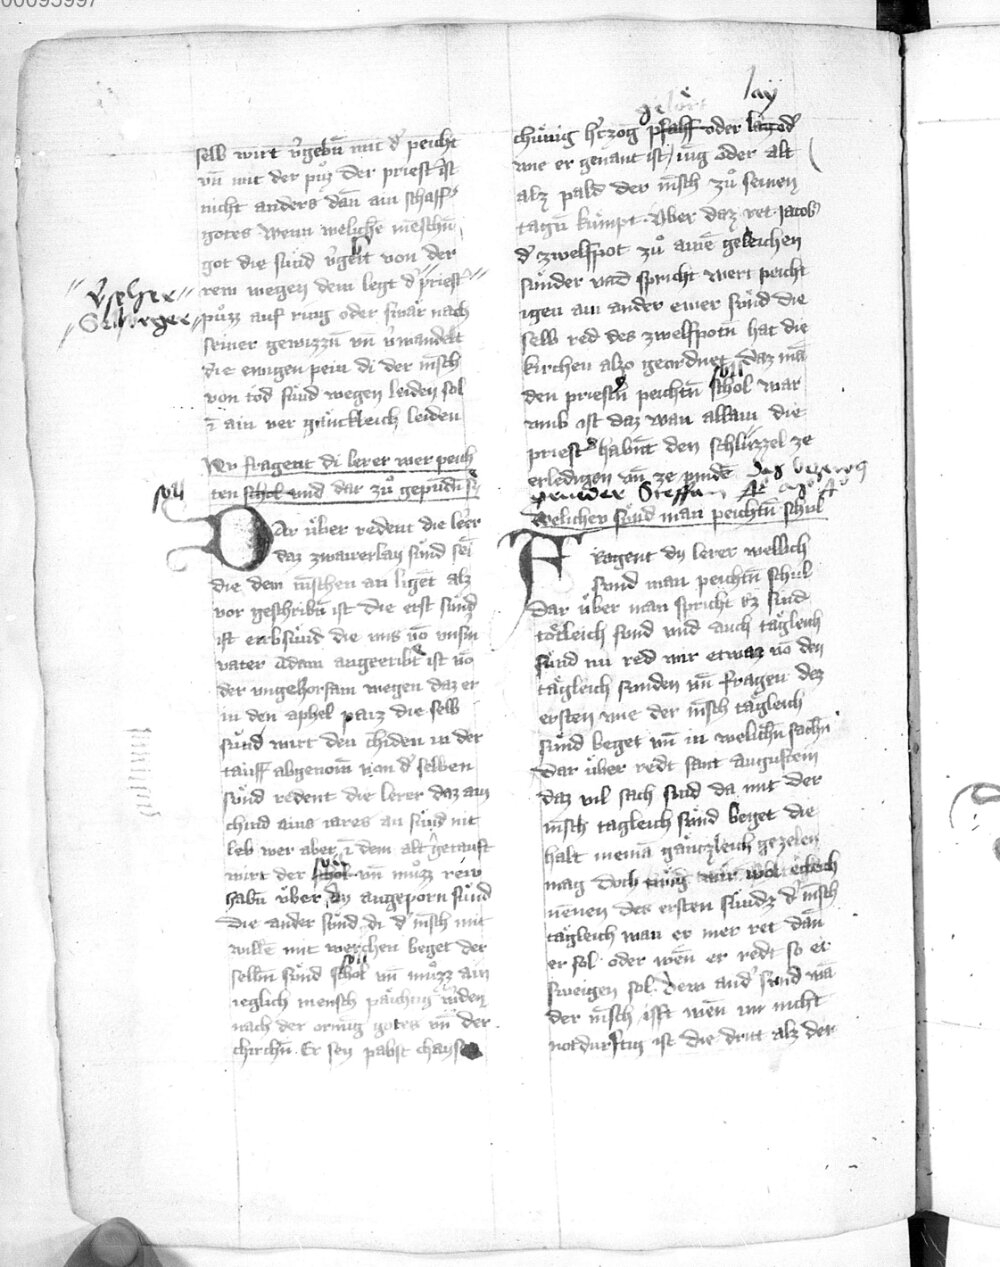 00095997
selb wirt v̓gebñ mit d̓ peicht
vn̄ mit der půz der priest̓ ist
nicht anders dan̄ ain schaff̓
gotes wenn welichē mēschn̄
got die sünd v̓geit von der
rew wegen dem legt d̓ priest̓
půzz auf ring oder swär nach
seiner gewizzn̄ vn̄ v̓wandelt
die ewigen pein di der mēsch
von tod sünd wegen leiden sol
ī ain ver gänckleich leiden
Nv fragent di lerer wer peich
ten schol vnd dar zů gepundn̄ sey
soll
Dar über redent die lerer
daz zwaierlay sünd sei
die dem mēschen an ligēt alz
vor geschribn̄ ist die erst sünd
ist erbsünd die uns vō vnsm̄
vater Adam angeeribt ist vō
der vngehorsam wegen daz er
in den aphel paiz die selb
sünd wirt den chinden in der
tauff abgenom̄ von d̓ selben
sünd redent die lerer daz ain
chind ains iares an sünd nit
leb wer aber ī dem alt̓ getauft
wirt der schol vn̄ můzz rew
habn̄ über dy angeporn sünd
Die ander sünd di d̓ mēsch mit
willē mit werchen beget der
selbn̄ sünd schol vn̄ můzz ain
ieglich mensch päichtig w̓den
nach der ornūg gotes vn̄ der
chirchn̄. Er sey pabst chayser
lay
chünig h̓tzog pfaff oder lay od̓
wie er genant ist iūg oder alt
alz pald der mēsch zů seinen
tagn̄ kümpt. Vber daz ret Jacob̓
d̓ zwelfpot zů ainē geleichen
sünder vnd spricht wert peicht
igen ain ander ewer sünd die
selb red des zwelfpotn̄ hat die
kirchen also geordnet daz mā
den priestn̄ peichtn̄ schol war
vmb ist daz wan allain die
priest̓ habn̄t den schlüzzel ze
erledigen vn̄ ze pindē
prueder Steffan
Welicher sünd man peichtn̄ schul
Fragent dy lerer wellich
sünd man peichtn̄ schul
Dar über man spricht ez sind
tötleich sünd vnd auch tägleich
sünd nu red wir etwaz vō den
tägleich sunden vn̄ fragen dez
ersten wie der mēsch tägleich
sünd beget vn̄ in welichn̄ sachn̄
Dar über redt sant Augustein
daz vil sach sind da mit der
mēsch tagleich sünd beget die
halt niemā gänczleich gezelen
mag doch mūg wir wol etleich
nēnen des ersten sündz d̓ mēsch
tägleich wan er mer ret dan̄
er sol oder wen̄ er redt so er
sweigen sol. Dew and̓ sund wā
der mēsch isst wen̄ im nicht
notdurftig ist die dritt alz der